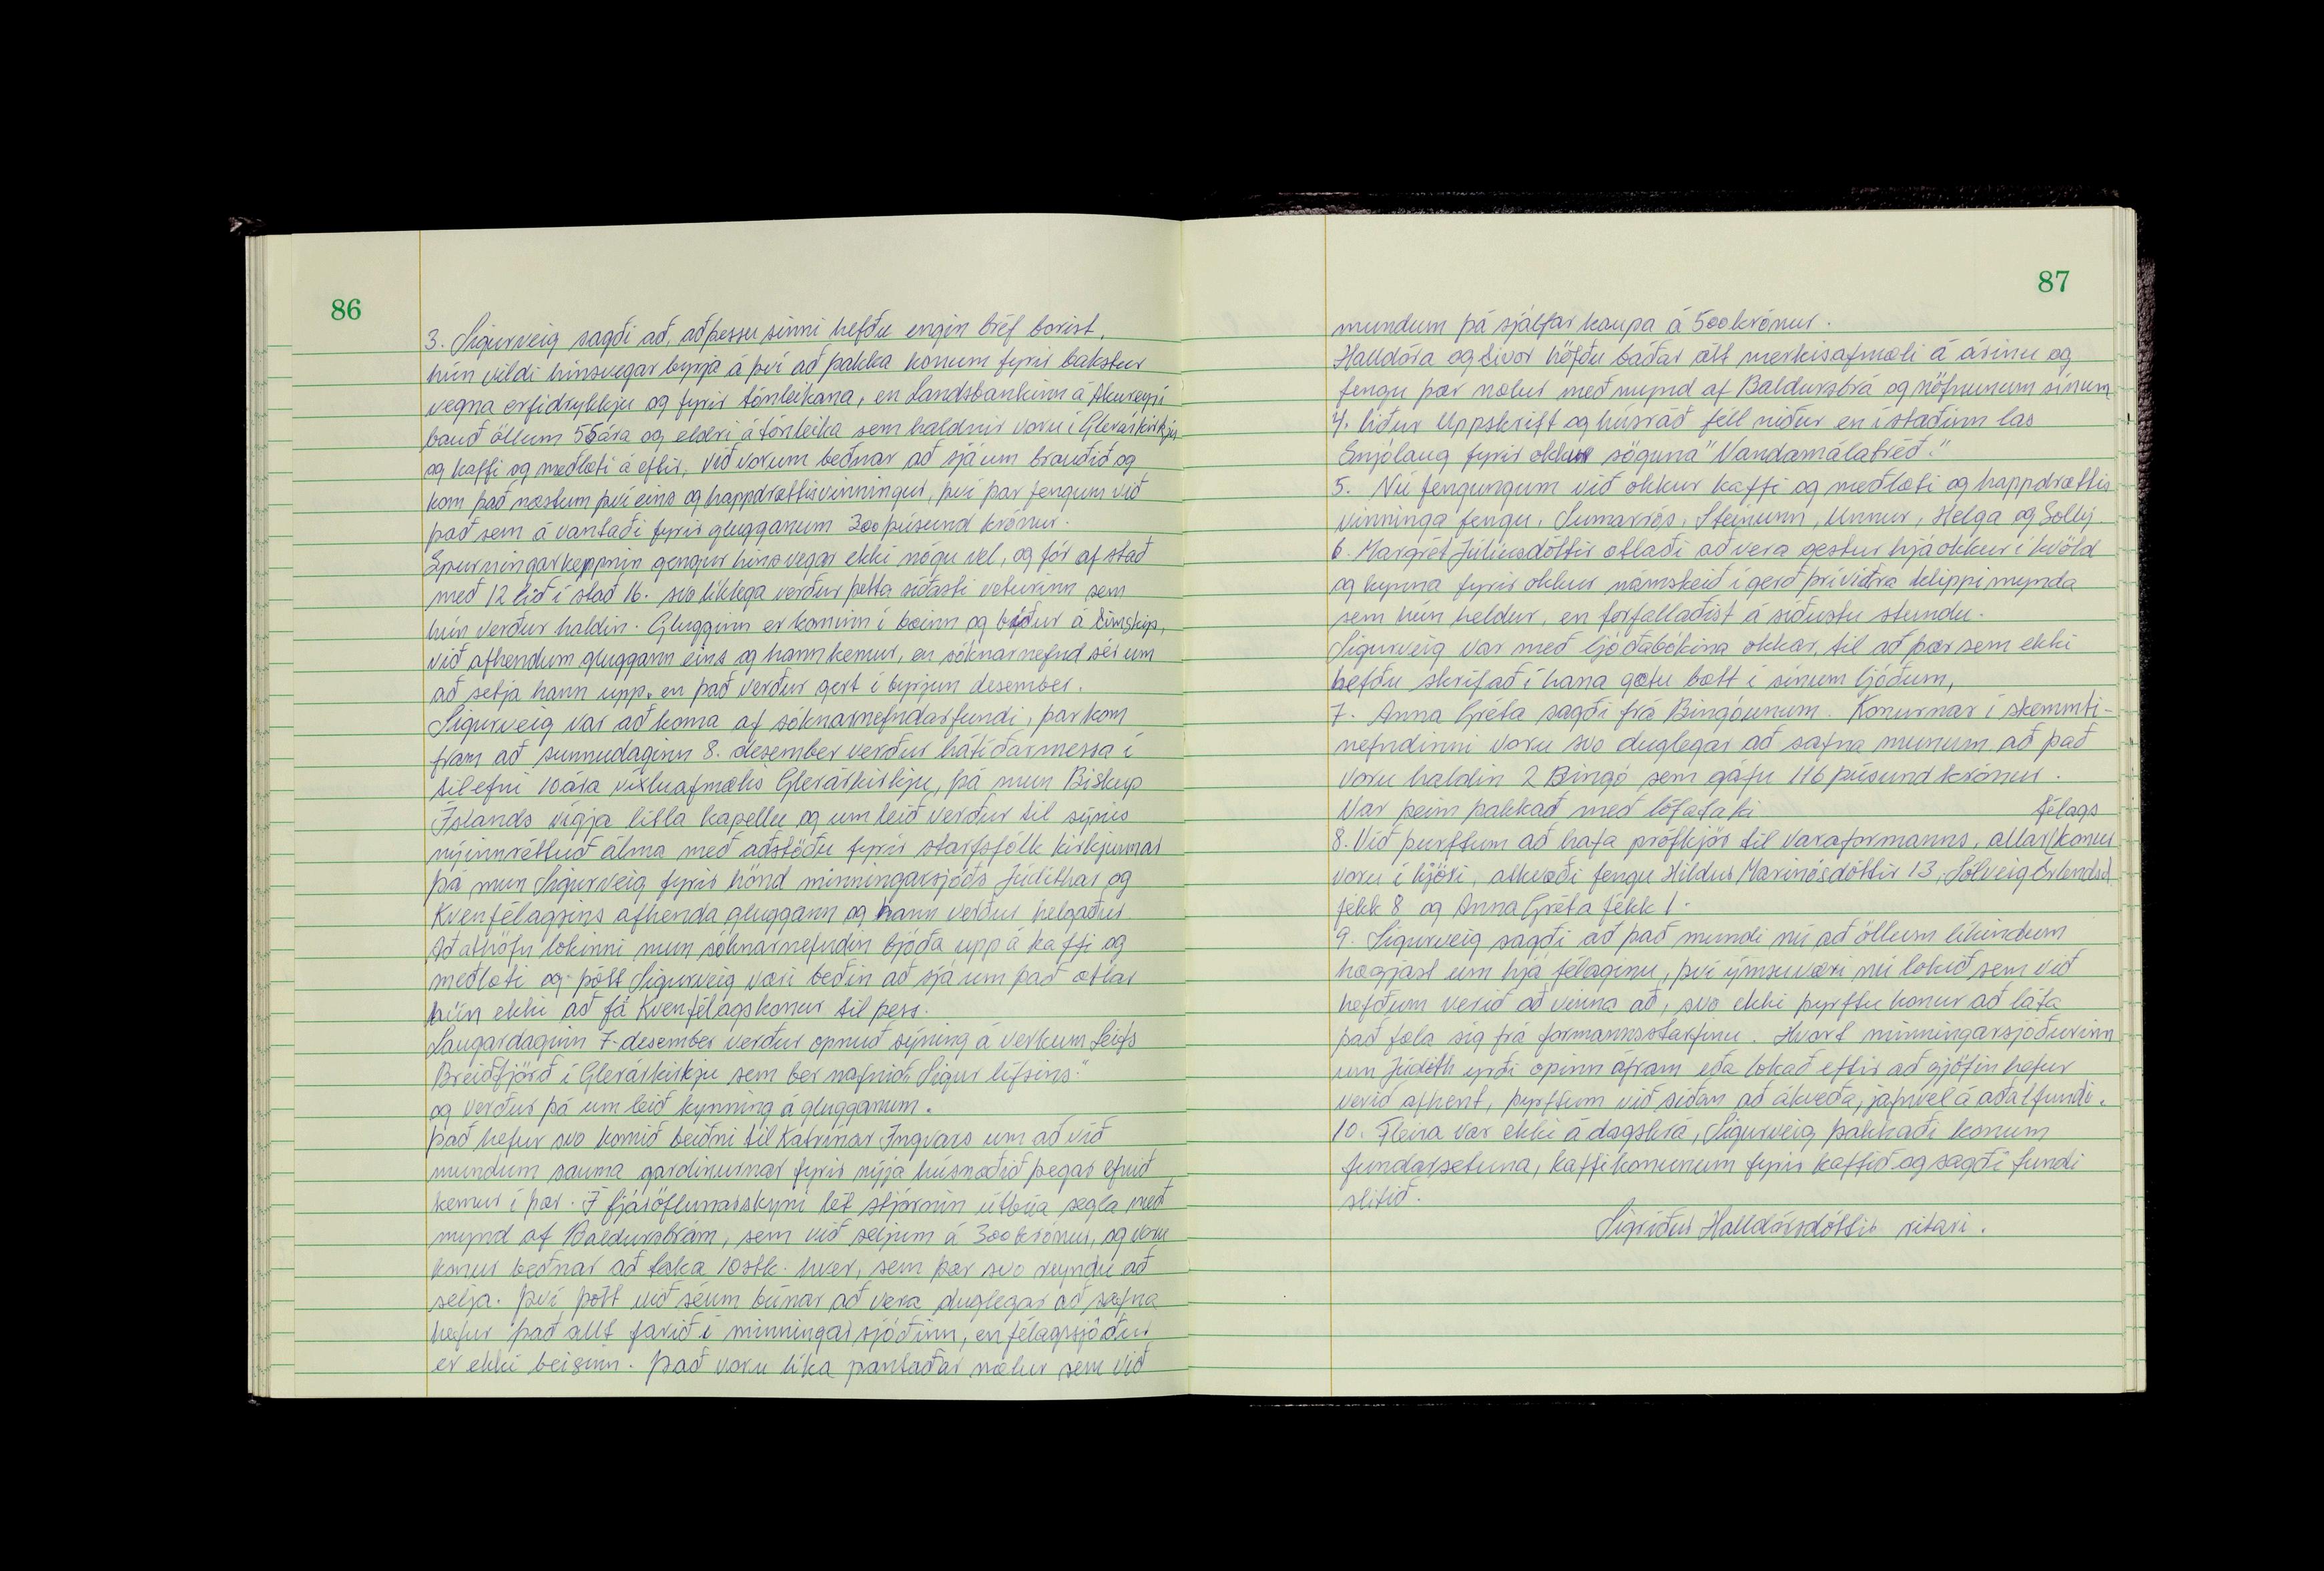 86
3. Sigurveig sagði að, að þessu sinni hefðu engin bréf borist,
hún vildi hinsvegar byrja á því að þakka konum fyrir bakstur
vegna erfidrykkju og fyrir tónleikana, en Landsbankinn á Akureyri
bauð öllum 55 ára og eldri á tónleika sem haldnir voru í Glerárkirkju
og kaffi og meðlæti á eftir, við vorum beðnar að sjá um brauðið og
kom það næstum því eins og happdrættisvinningur, því þar fengum við
það sem á vantaði fyrir glugganum 300 þúsund krónur.
Spurningarkeppnin gengur hinsvegar ekki nógu vel, og fór af stað
með 12 lið í stað 16. svo líklega verður þetta síðasti veturinn sem
hún verður haldin. Glugginn er kominn í bæinn og bíður á Eimskip,
við afhendum gluggann eins og hann kemur, en sóknarnefnd sér um
að setja hann upp. en það verður gert í byrjun desember.
Sigurveig var að koma af sóknarnefndarfundi, þar kom
fram að sunnudaginn 8. desember verður hátíðarmessa í
tilefni 10 ára vixluafmælis Glerárkirkju, þá mun Biskup
Íslands vígja litla kapellu og um leið verður til sýnis
nýinnréttuð álma með aðstöðu fyrir starfsfólk kirkjunnar
þá mun Sigurveig fyrir hönd minningarsjóðs Júdithar og
Kvenfélagsins afhenda gluggann og hann verður helgaður
Að athöfn lokinni mun sóknarnefndin bjóða upp á kaffi og
meðlæti og þótt Sigurveig væri beðin að sjá um það ætlar
hún ekki að fá Kvenfélagskonur til þess.
Laugardaginn 7. desember verður opnuð sýning á verkum Leifs
Breiðfjörð í Glerárkirkju sem ber nafnið "Sigur lífsins."
og verður þá um leið kynning á glugganum.
það hefur svo komið beiðni til Katrínar Ingvars um að við
mundum sauma gardínurnar fyrir nýja húsnæðið þegar efnið
kemur í þær. Í fjáröflunarskyni lét stjórnin útbúa segla með
mynd af Baldursbrám, sem við seljum á 300 krónur, og voru
konur beðnar að taka 10 stk. hver, sem þær svo reyndu að
selja. því þótt við séum búnar að vera duglegar að safna
hefur það allt farið í minningarsjóðinn, en félagssjóður
er ekki beisinn. Það voru líka pantaðar nælur sem við
87
mundum þá sjálfar kaupa á 500 krónur.
Halldóra og Eivor höfðu báðar átt merkisafmæli á árinu og
fengu þær nælur með mynd af Baldursbrá og nöfnunum sínum
4. liður Uppskrift og húsráð féll niður en í staðinn las
Snjólaug fyrir okkur söguna "Vandamálatréð."
5. Nú fengungum við okkur kaffi og meðlæti og happdrættis
vinninga fengu, Sumarrós, Steinunn, Unnur, Helga og Solley.
6. Margrét Júlíusdóttir ætlaði að vera gestur hjá okkur í kvöld
og kynna fyrir okkur námskeið í gerð þrívíðra klippimynda
sem hún heldur, en forfallaðist á síðustu stundu.
Sigurveig var með ljóðabókina okkar, til að þær sem ekki
hefðu skrifað í hana gætu bætt í sínum ljóðum,
7. Anna Gréta sagði frá Bingóunum. Konurnar í skemmti-
nefndinni voru svo duglegar að safna munum að það
voru haldin 2 Bingó sem gáfu 116 þúsund krónur.
Var þeim þakkað með lófataki
félags
8. Við þurftum að hafa prófkjör til varaformanns, allar konur
voru í kjöri, atkvæði fengu Hildur Marinósdóttir 13, Sólveig Erlendsd
fékk 8 og Anna Gréta fékk 1.
9. Sigurveig sagði að það mundi nú að öllum líkindum
hægjast um hjá félaginu, því ýmsu væri nú lokið sem við
hefðum verið að vinna að, svo ekki þyrftu konur að láta
það fæla sig frá formannsstarfinu. Hvort minningarsjóðurinn
um Júdith yrði opinn áfram eða lokað eftir að gjöfin hefur
verið afhent, þyrftum við síðan að ákveða, jafnvel á aðalfundi.
10. Fleira var ekki á dagskrá, Sigurveig þakkaði konum
fundarsetuna, kaffikonunum fyrir kaffið og sagði fundi
slitið.
Sigríður Halldórsdóttir ritari.